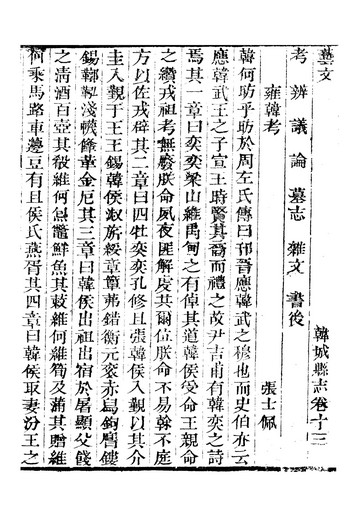 藝文 韓城縣志卷十三
考 辨 議 論 墓志 雜文 書後
雍韓考 張士佩
韓何昉乎昉於周左氏傳曰邘晉應韓武之穆也而史伯亦云
應韓武王之子宣王時賢其裔而禮之故尹吉甫有韓奕之詩
焉其一章曰奕奕梁山維禹甸之有倬其道韓侯受命王親命
之纘戎祖考無廢朕命夙夜匪解虔共爾位朕命不易榦不庭
方以佐戎辟其二章曰四牡奕奕孔修且張韓侯入覲以其介
圭入覲于王王錫韓侯淑旂綏章簟茀錯衡元衮赤舄鉤膺鏤
錫鞹鞃淺幭鞗革金厄其三章曰韓侯出祖出宿於屠顯父餞
之清酒百壺其殽維何炰鼈鮮魚其蔌維何維筍及蒲其贈維
何乘馬路車籩豆有且侯氏燕胥其四章曰韓侯取妻汾王之